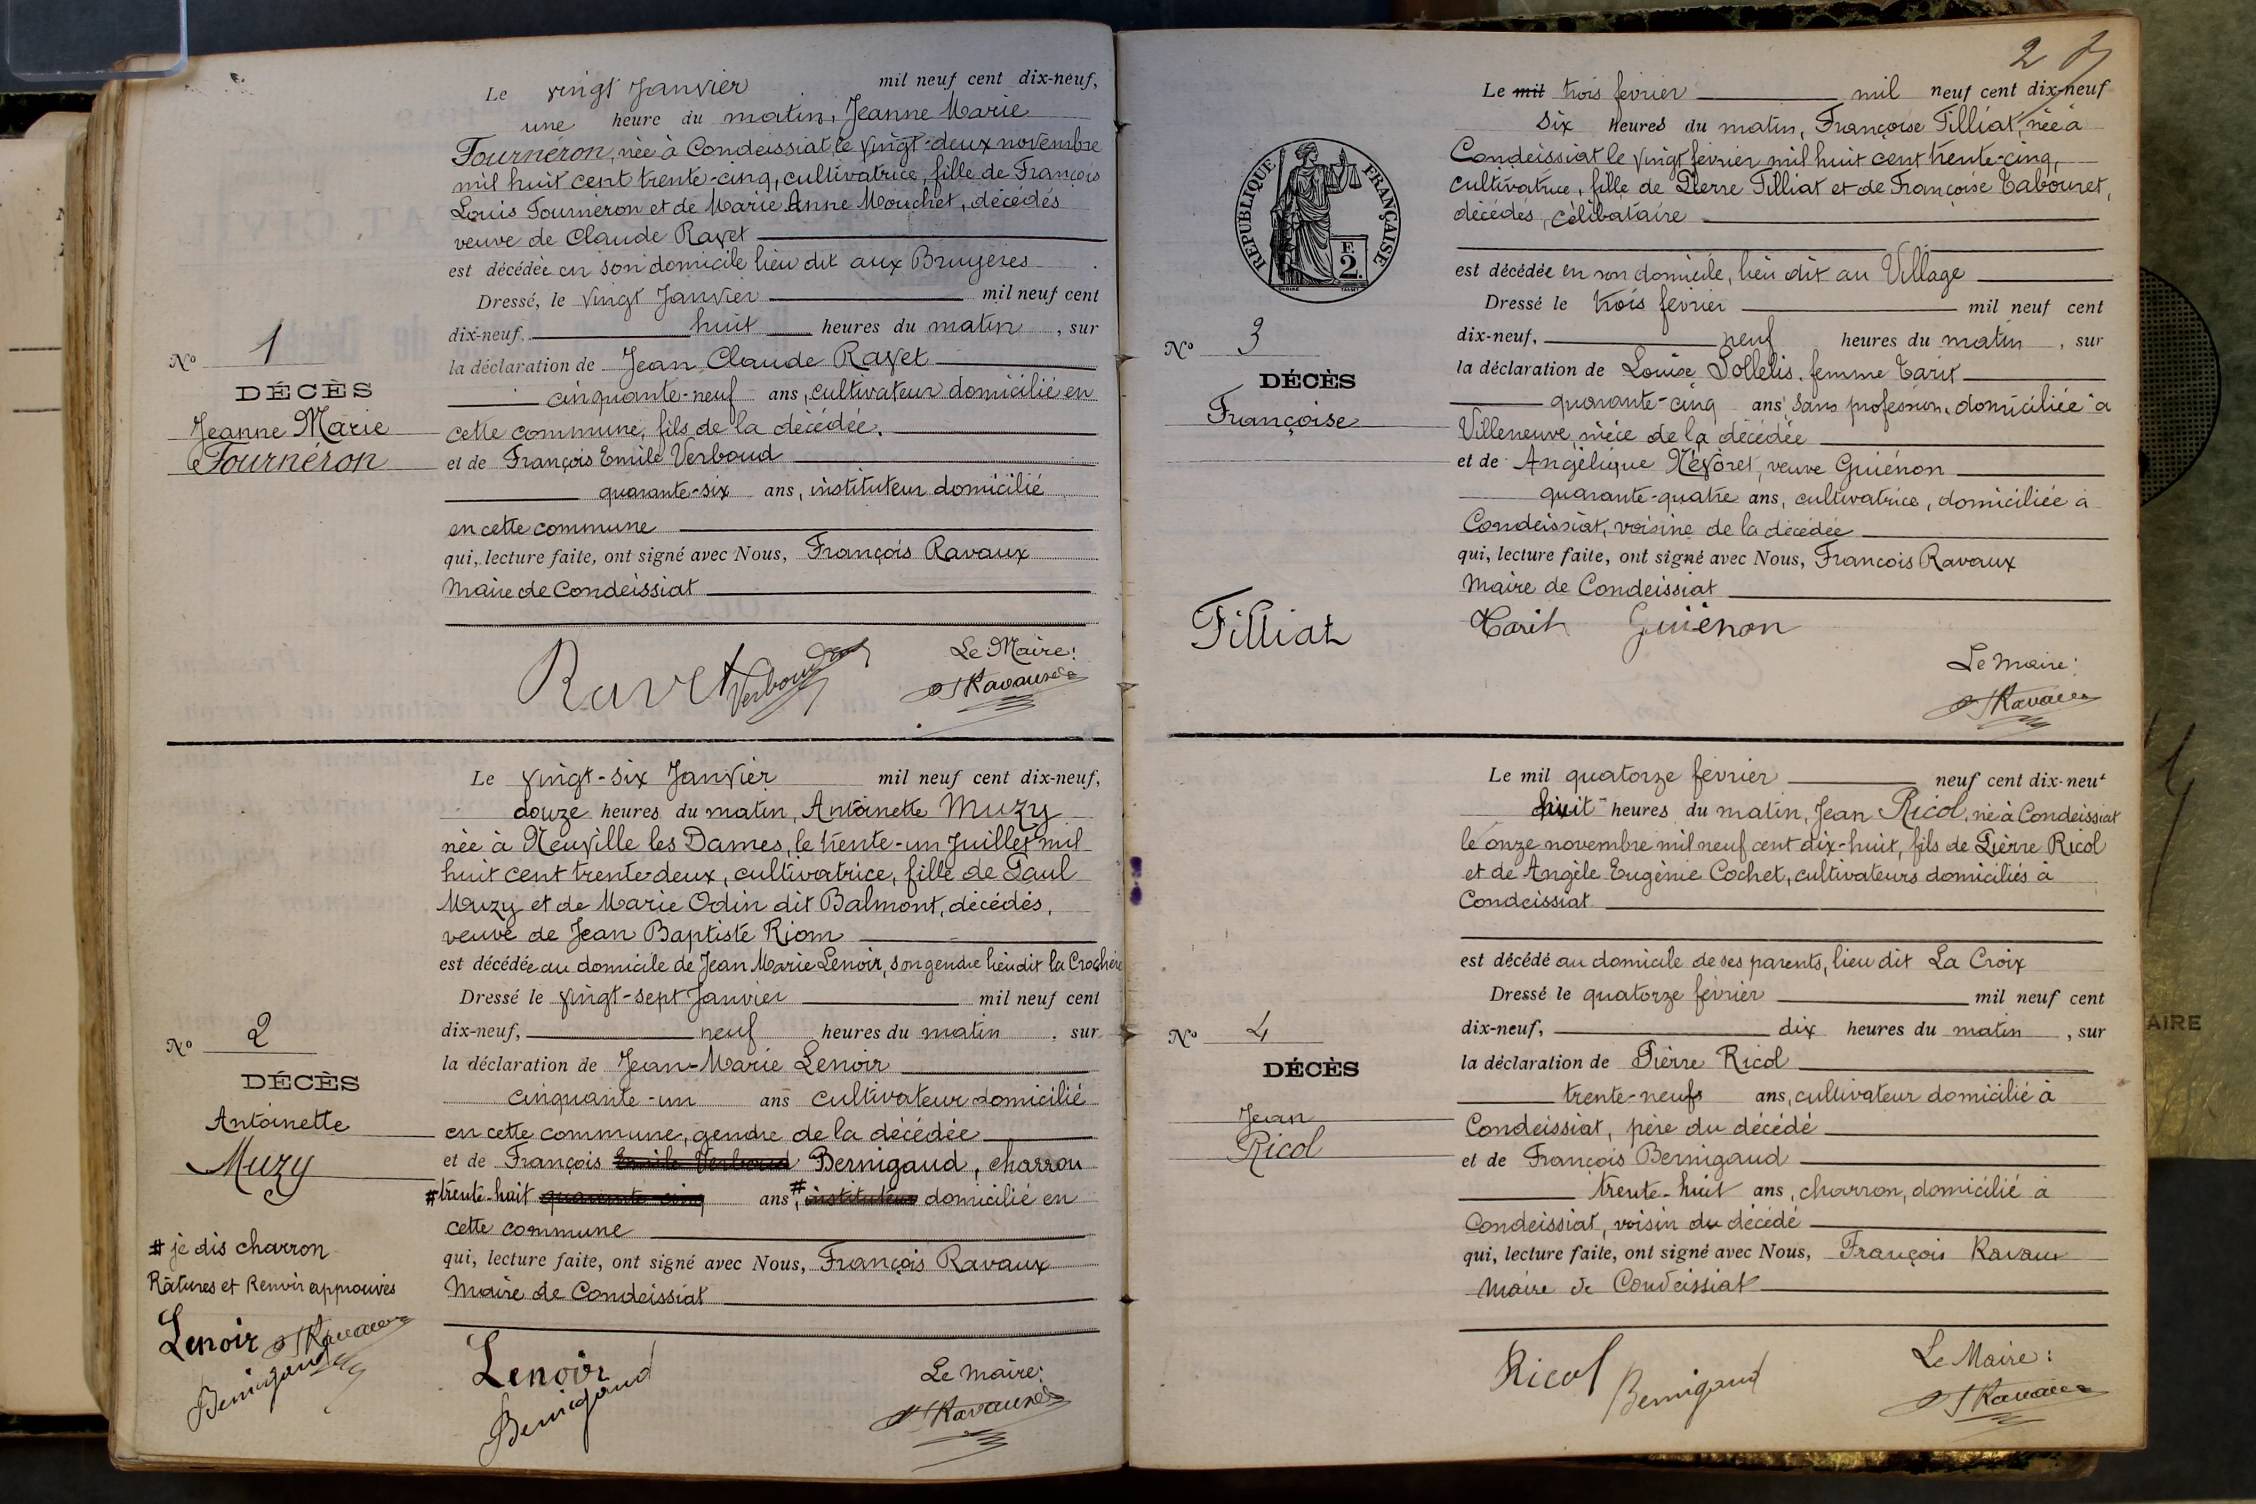 Le vingt Janvier mil neuf cent dix-neuf,
une heure du matin, Jeanne Marie
Fournéron, née à Condeissiat, le vingt-deux novembre
mil huit cent trente-cinq, cultivatrice, fille de François
Louis Fournéron et de Marie Anne Mouchet, décédés
veuve de Claude Ravet
est décédée en son domicile lieu dit aux Bruyères
Dressé, le vingt Janvier mil neuf cent
dix-neuf, huit heures du matin, sur
la déclaration de Jean Claude Ravet
cinquante-neuf ans, cultivateur domicilié en
cette commune, fils de la décédée,
et de François Emile Verboud
quarante-six ans, instituteur domicilié
en cette commune
qui, lecture faite, ont signé avec Nous, François Ravaux
Maire de Condeissiat
N° 1
DÉCÈS
Jeanne Marie
Fournéron
Le Maire:
Ravet Verboud Ravaux
Le vingt-six Janvier mil neuf cent dix-neuf,
douze heures du matin, Antoinette Muzy
née à Neuville les Dames, le trente-un Juillet mil
huit cent trente-deux, cultivatrice, fille de Paul
Muzy et de Marie Odin dit Balmont, décédés,
veuve de Jean Baptiste Riom
est décédée au domicile de Jean Marie Lenoir, son gendre lieu dit la Crochère
Dressé le vingt-sept Janvier mil neuf cent
dix-neuf, neuf heures du matin, sur
la déclaration de Jean-Marie Lenoir
cinquante-un ans cultivateur domicilié
en cette commune, gendre de la décédée
et de François Emile Verboud Bernigaud, charron
# trente-huit quarante-cinq ans, # instituteur domicilié en
cette commune
qui, lecture faite, ont signé avec Nous, François Ravaux
Maire de Condeissiat
N° 2
DÉCÈS
Antoinette
Muzy
# je dis charron
Ratures et Renvoi approuvés
Lenoir Ravaux
Bernigaud
Lenoir
Bernigaud
Le Maire:
Ravaux
2
Le mil trois février mil neuf cent dix-neuf
six heures du matin, Françoise Tilliat, née à
Condeissiat le vingt février mil huit cent trente-cinq,
cultivatrice, fille de Pierre Tilliat et de Françoise Tabouret,
décédés, célibataire
est décédée en son domicile, lieu dit au Village
Dressé le trois février mil neuf cent
dix-neuf, neuf heures du matin, sur
la déclaration de Louise Sollelis, femme Tarit
quarante-cinq ans, sans profession, domiciliée à
Villeneuve, nièce de la décédée
et de Angélique Névoret, veuve Guiénon
quarante-quatre ans, cultivatrice, domiciliée à
Condeissiat, voisine de la décédée
qui, lecture faite, ont signé avec Nous, François Ravaux
Maire de Condeissiat
RÉPUBLIQUE FRANÇAISE
F.
2.
N° 3
DÉCÈS
Françoise
Tilliat
Tarit Guiénon
Le Maire:
Ravaux
Le mil quatorze février neuf cent dix-neuf
huit heures du matin, Jean Ricol, né à Condeissiat
le onze novembre mil neuf cent dix-huit, fils de Pierre Ricol
et de Angèle Eugénie Cochet, cultivateurs domiciliés à
Condeissiat
est décédé au domicile de ses parents, lieu dit La Croix
Dressé le quatorze février mil neuf cent
dix-neuf, dix heures du matin, sur
la déclaration de Pierre Ricol
trente-neuf ans, cultivateur domicilié à
Condeissiat, père du décédé
et de François Bernigaud
trente-huit ans, charron, domicilié à
Condeissiat, voisin du décédé
qui, lecture faite, ont signé avec Nous, François Ravaux
Maire de Condeissiat
N° 4
DÉCÈS
Jean
Ricol
Ricol Bernigaud
Le Maire:
Ravaux
AIRE